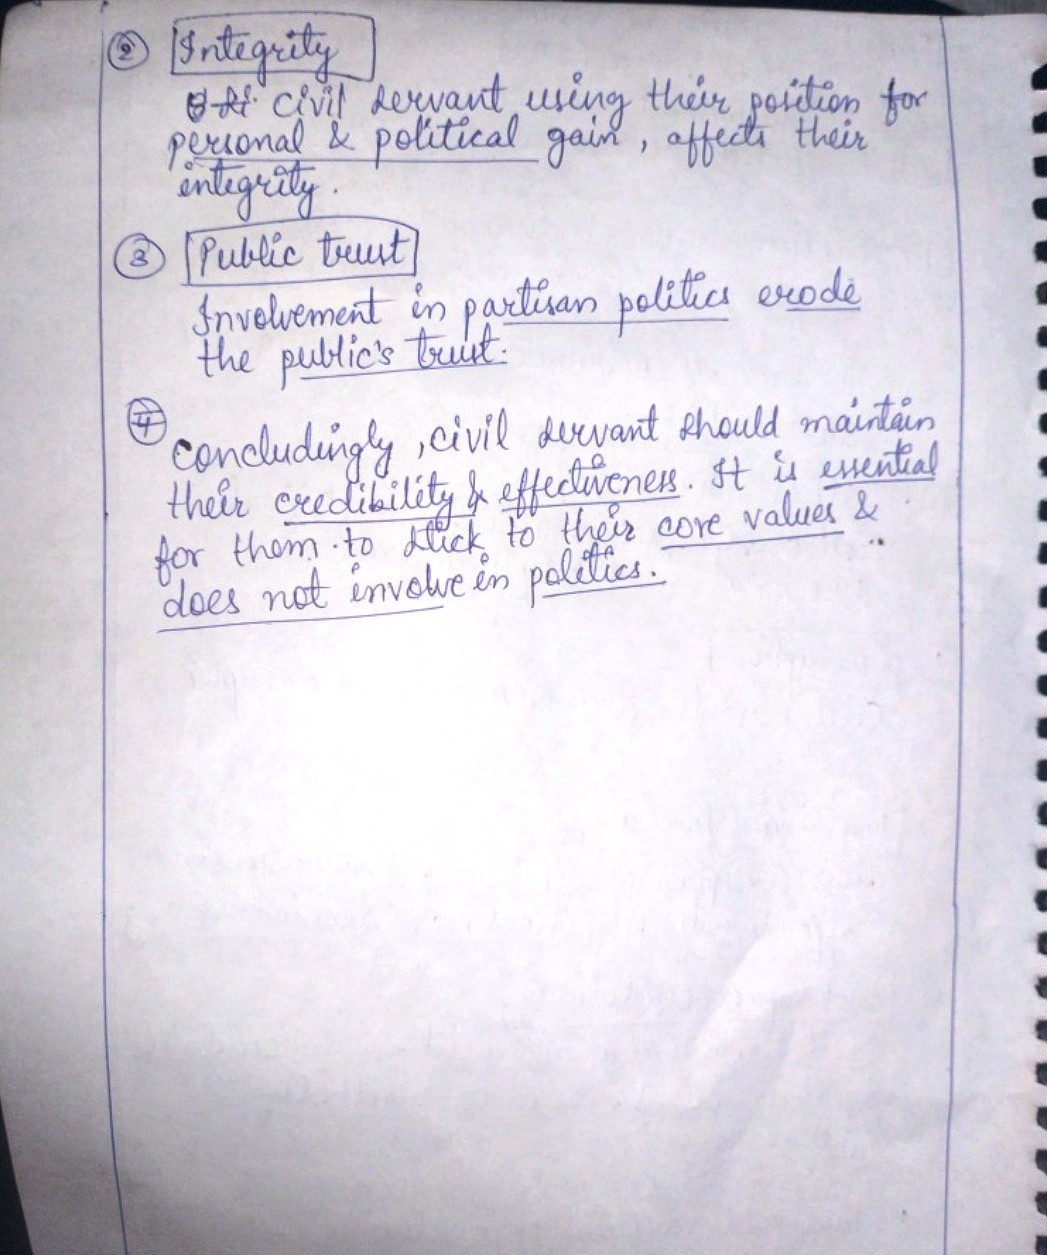 ② Integrity
civil servant using their position for
personal & political gain, affects their
integrity.
③ Public trust
Involvement in partisan politics erode
the public's trust.
④
Concludingly, civil servant should maintain
their credibility & effectiveness. It is essential
for them to stick to their core values &
does not involve in politics.